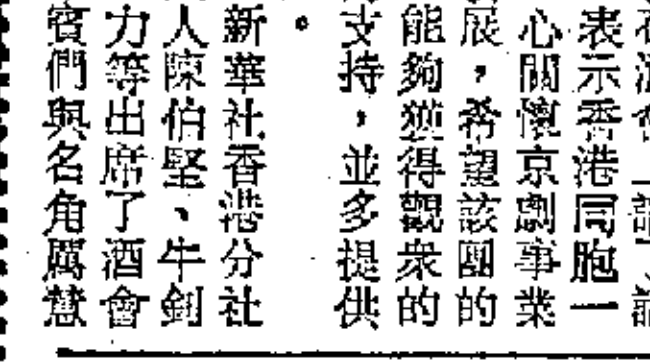 表示香港同胞一
心關懷京劇事業
展，希望該團的
能夠獲得觀衆的
支持，並多提供
。
新華社香港分社
人陳伯堅、牛釗
力等出席了酒會
賓們與名角厲慧